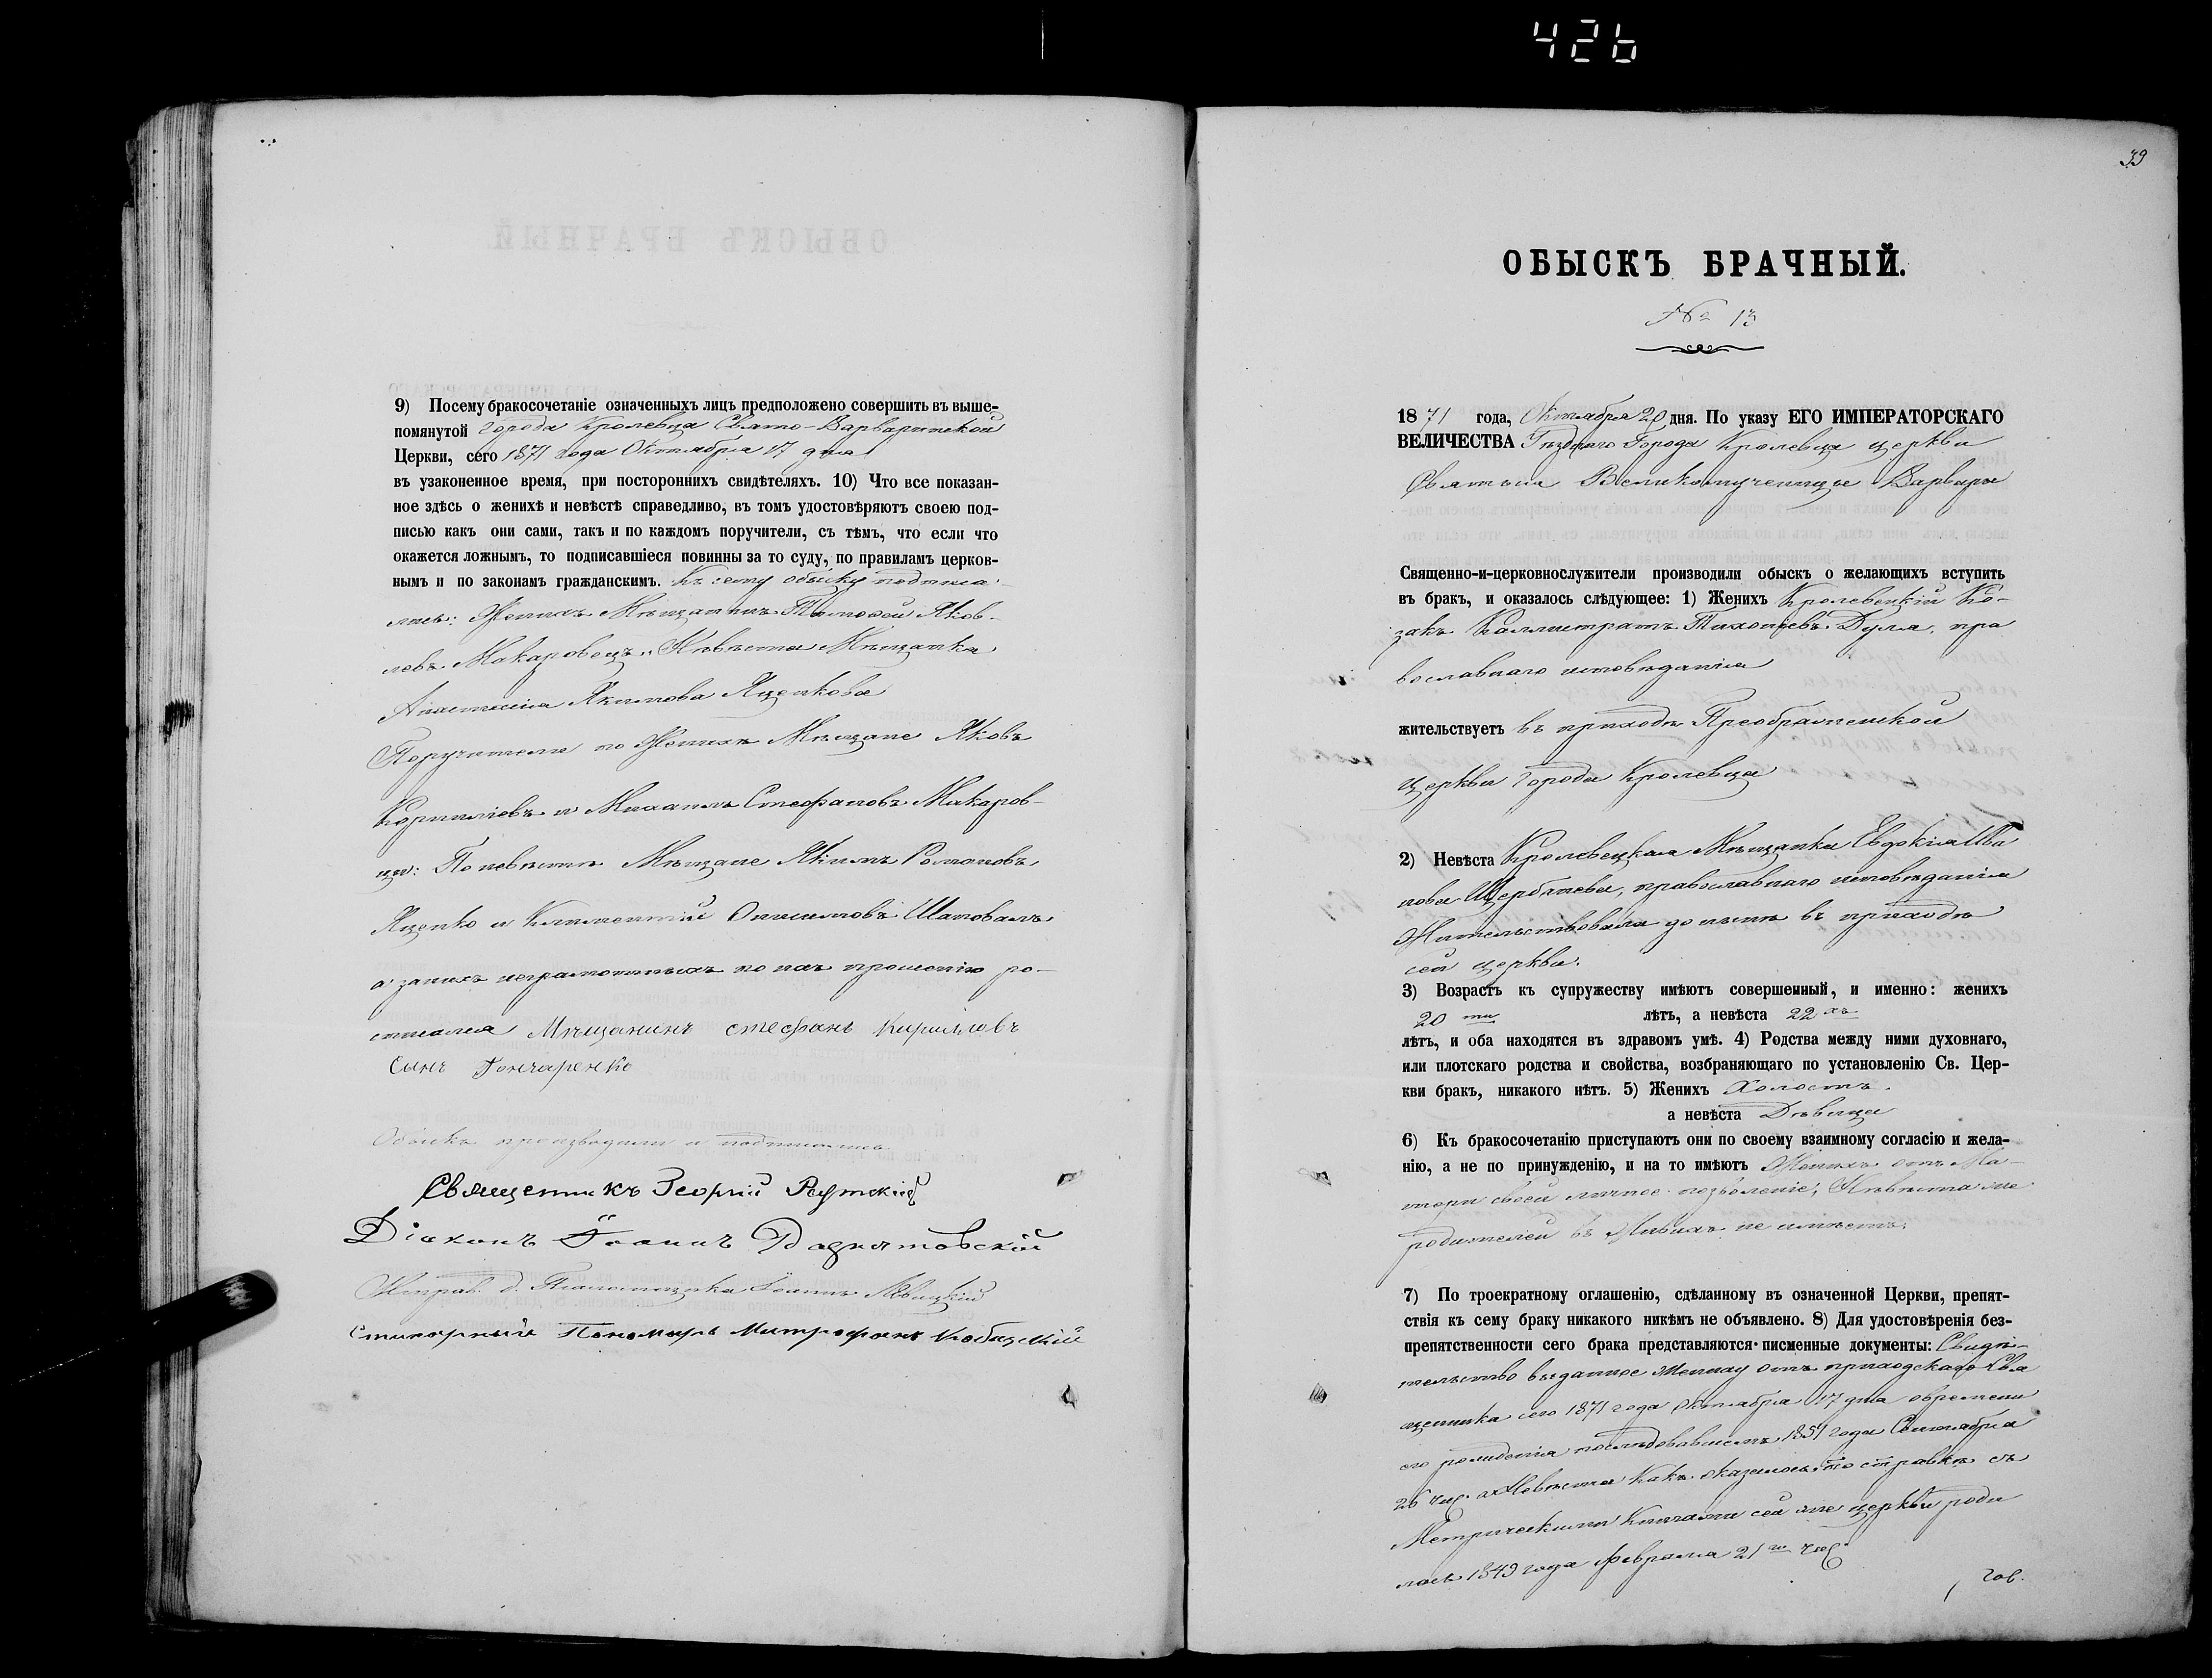 426
9) Посему бракосочетаніе означенныхъ лицъ предположено совершить въ выше-
помянутой города Кролевца Свято-Варваринской
Церкви, сего 1871 года Октября 17 дня
въ узаконенное время, при постороннихъ свидѣтеляхъ. 10) Что все показан-
ное здѣсь о женихѣ и невѣстѣ справедливо, въ томъ удостовѣряютъ своею под-
писью какъ они сами, такъ и по каждомъ поручители, съ тѣмъ, что если что
окажется ложнымъ, то подписавшіеся повинны за то суду, по правиламъ церков-
нымъ и по законамъ гражданскимъ. Къ сему обыску подписа-
лись: Женихъ Мѣщанинъ Тимофей Яков-
левъ Макаровецъ. Невѣста Мѣщанка
Анастасія Якимова Яценкова
Поручители по Женихѣ Мѣщане Яковъ
Корниліевъ и Михаилъ Стефановъ Макаров-
цы: По невѣстѣ Мѣщане Якимъ Романовъ
Яценко и Климентій Онисимовъ Шаповалъ
а за нихъ неграмотныхъ по ихъ прошенію ро-
списался Мѣщанинъ стефанъ Кириловъ
Сынъ Гончаренко
Обыскъ производили и подписались
Священникъ Георгій Рутскій
Діаконъ Іоаннъ
Исправ. д. Псаломщика Іоаннъ Левицкій
Пономарь Митрофанъ
39
ОБЫСКЪ БРАЧНЫЙ.
№ 13
1871 года, Октября 20 дня. По указу ЕГО ИМПЕРАТОРСКАГО
ВЕЛИЧЕСТВА Уѣзднаго Города Кролевца церкви
Святыя Великомученицы Варвары
Священно-и-церковнослужители производили обыскъ о желающихъ вступить
въ бракъ, и оказалось слѣдующее: 1) Женихъ Кролевецкій Ко-
закъ Каллистратъ Тихоновъ Дуля, пра
вославнаго исповѣданія
жительствуетъ въ приходѣ Преображенской
церкви города Кролевца
2) Невѣста Кролевецкая Мѣщанка Евдокія Ива
нова Щербакова, православнаго исповѣданія
Жительствовала до нынѣ въ приходѣ
сей церкви.
3) Возрастъ къ супружеству имѣютъ совершенный, и именно: женихъ
20 ти лѣтъ, а невѣста 22 хъ
лѣтъ, и оба находятся въ здравомъ умѣ. 4) Родства между ними духовнаго,
или плотскаго родства и свойства, возбраняющаго по установленію Св. Цер-
кви бракъ, никакого нѣтъ. 5) Женихъ Холостъ.
а невѣста Дѣвица
6) Къ бракосочетанію приступаютъ они по своему взаимному согласію и жела-
нію, а не по принужденію, и на то имѣютъ Женихъ отъ Ма-
тери своей личное позволеніе; Невѣста же
родителей въ Живыхъ не имѣетъ.
7) По троекратному оглашенію, сдѣланному въ означенной Церкви, препят-
ствія къ сему браку никакого никѣмъ не объявлено. 8) Для удостовѣренія без-
препятственности сего брака представляются письменные документы: Свидѣ-
тельство выданное Жениху отъ приходскаго Свя
щенника сего 1871 года Октября 17 дня о времени
его рожденія послѣдовавшемъ 1851 года Сентября
26 чис. а Невѣста какъ оказалось по справкѣ съ
Метрическими Книгами сей же церкви роди
лась 1849 года февраля 21 го чис.